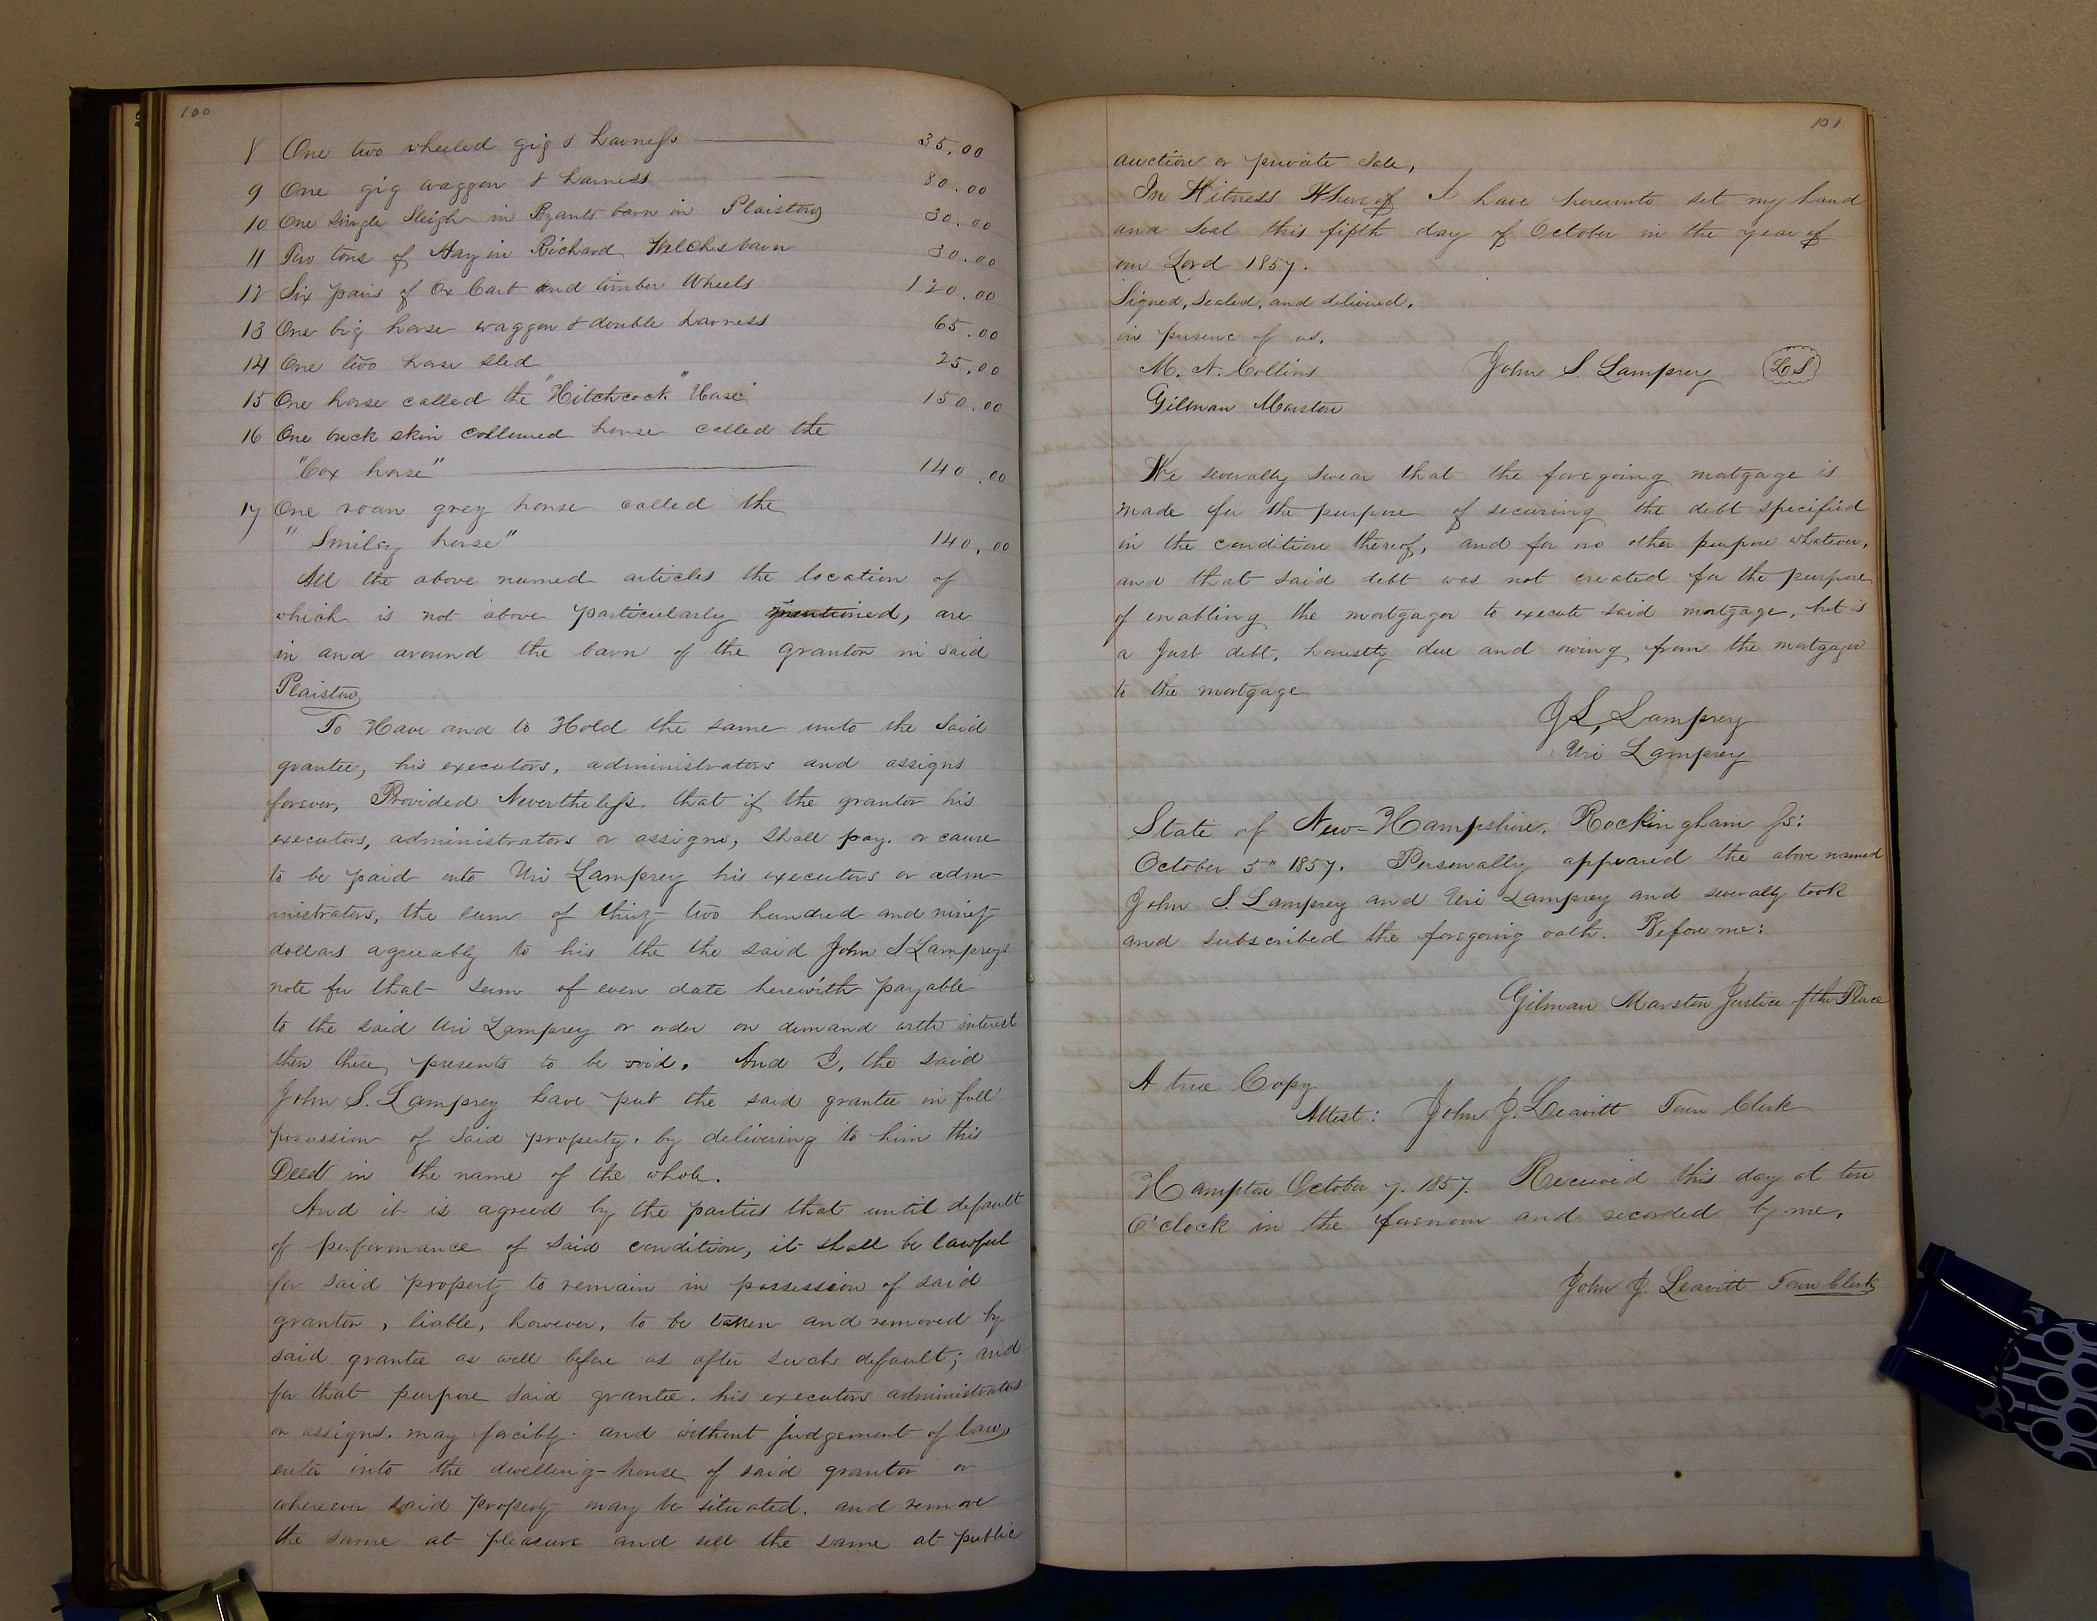 100
8 One two wheeled gig & harness 35.00
9 One gig waggon & harness 80.00
10 One single Sleigh in barn in Plaistow 30.00
11 Two tons of Hay in Richard Welchs barn 30.00
12 Six pairs of Ox Cart and timber Wheels 120.00
13 One big horse waggon & double harness 65.00
14 One two horse sled 25.00
15 One horse called the "Hitchcock" 150.00
16 One buck skin horse called the
"Cox horse" 140.00
17 One roan grey horse called the
"Smiley horse" 140.00
All the above named articles the location of
which is not above particularly mentioned, are
in and around the barn of the grantor in said
Plaistow
To Have and to Hold the same unto the said
grantee, his executors, administrators and assigns
forever, Provided Nevertheless that if the grantor his
executors, administrators or assigns, shall pay, or cause
to be paid unto Uri Lamprey his executors or adm-
inistrators, the sum of thirty two hundred and ninety
dollars agreeably to his the the said John S Lampreys
note for that sum of even date herewith payable
to the said Uri Lamprey or order on demand with interest
then these presents to be void. And I, the said
John S. Lamprey have put the said grantee in full
possession of said property, by delivering to him this
Deed in the name of the whole.
And it is agreed by the parties that until default
of performance of said condition, it shall be lawful
for said property to remain in possession of said
grantor, liable, however, to be taken and removed by
said grantee as well before as after such default; and
for that purpose said grantee. his executors administrators
or assigns. may forcibly and without judgement of law,
enter into the dwelling-house of said grantor or
wherever said property may be situated. and remove
the same at pleasure and sell the same at public
101
auction or private sale,
In Witness Whereof I have hereunto set my hand
and seal this fifth day of October in the year of
our Lord 1857.
Signed, sealed, and delivered,
in presenc of us,
M. N. Collins John S. Lamprey LS
Gilman Marston
We severally swear that the foregoing mortgage is
made for the purpose of securing the debt specified
in the condition thereof, and for no other purpose whatever,
and that said debt was not created for the purpose
of enabling the mortgagor to execute said mortgage, but is
a Just debt, honestly due and owing from the mortgagor
to the mortgage
J S, Lamprey
Uri Lamprey
State of New-Hampshire. Rockingham Ss:
October 5" 1857. Personally appeared the above named
John S. Lamprey and Uri Lamprey and severally took
and subscribed the foregoing oath. Before me:
Gilman Marston Justice of the Peace
A true Copy
Attest: John J. Leavitt Town Clerk
Hampton October 7. 1857. Received this day at ten
O'clock in the forenoon and recorded by me,
John J. Leavitt Town Clerk